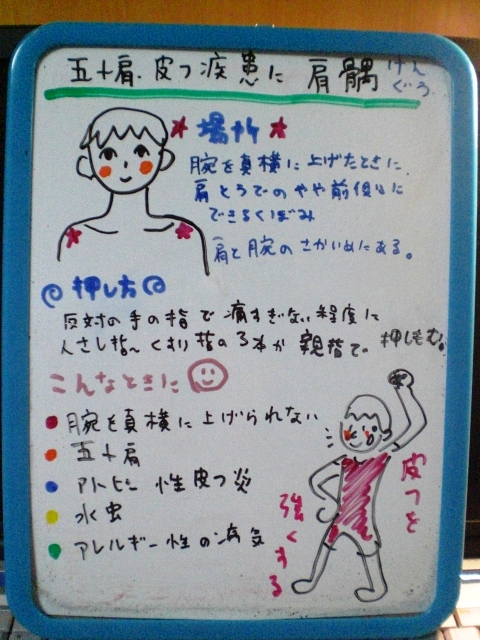 五十肩、皮フ疾患に 肩髃 けんぐう
場所
腕を真横に上げたときに、
肩とうでのやや前側に
できるくぼみ
肩と腕のさかいめにある。
押し方
反対の手の指で痛すぎない程度に
人さし指〜くすり指の3本か親指で押しもむ。
こんなときに
腕を真横に上げられない
五十肩
アトピー性皮フ炎
水虫
アレルギー性の病気
皮フを
強くする